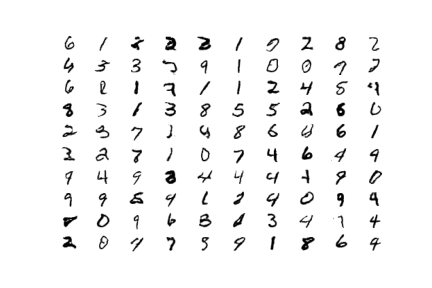 6 1 8 2 2 1 7 2 8 2
4 3 3 5 9 1 0 0 7 2
6 2 1 7 1 1 2 4 5 4
8 3 1 3 8 5 5 2 6 0
2 3 7 1 4 8 6 4 6 1
3 2 7 1 0 7 4 6 4 9
9 4 9 3 4 4 4 1 9 0
9 9 5 4 1 2 4 0 9 9
8 0 9 6 3 1 3 4 7 4
2 0 4 7 5 9 1 8 6 4